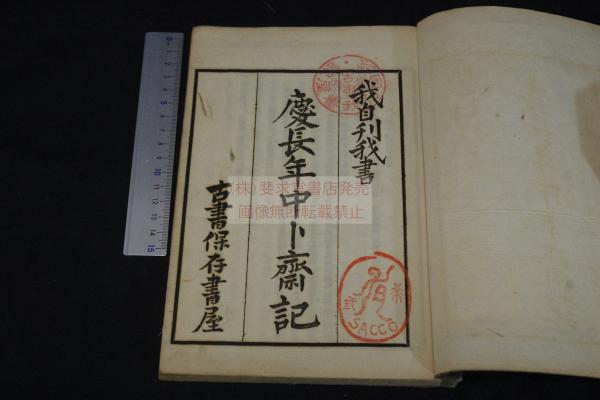 我自刊我書
慶長年中卜齋記
古書保存書屋
(株)斐求堂書店発売
画像無断転載禁止
SACCO
0
5
10
11
12
13
14
15